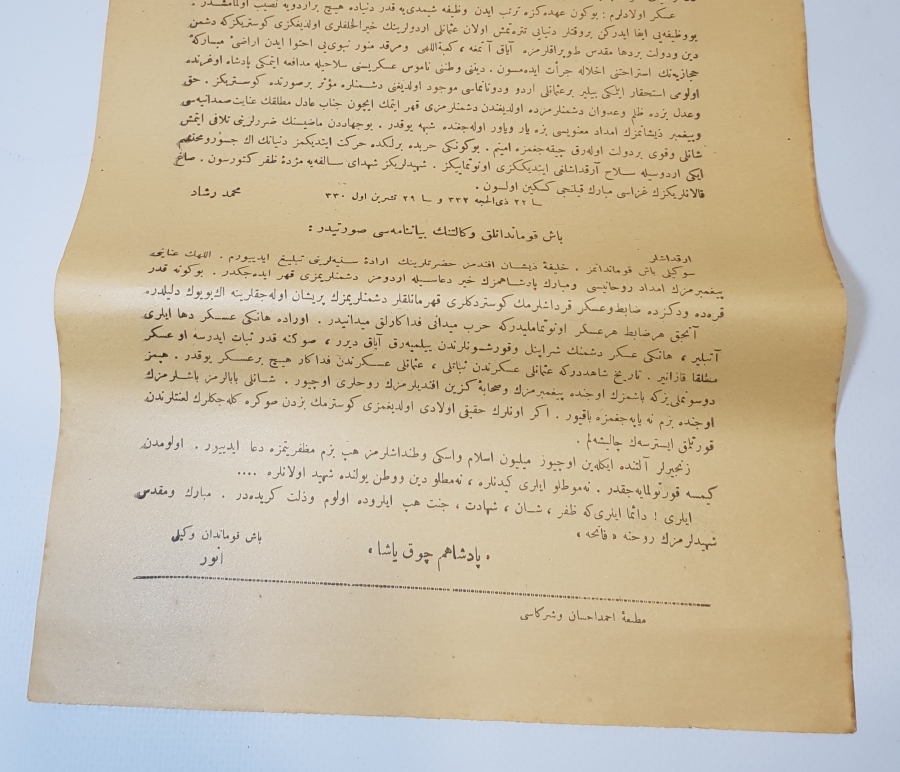 عسكر اولادلرم : بوكون عهده‌كزه ترتب ايدن وظيفه شيمدى‌يه قدر دنياده هيچ براردويه نصيب اولمامشدر .
بووظيفه‌يى ايفا ايدركن بروقتلر دنيايى تتره‌تمش اولان عثمانلى اردولرينك خيرالخلفلرى اولديغكزى كوستريكزكه دشمن
دين ودولت بردها مقدس طوپراقلرمزه آياق آتمغه ، كعبة‌اللهى ومرقد منور نبوى‌يى احتوا ايدن اراضئ مباركۀ
حجازيه‌نك استراحتنى اخلاله جرأت ايده‌مسون . دينى وطنى ناموس عسكريسنى سلاحيله مدافعه ايتمكى پادشاه اوغرنده
اولومى استحقار ايتمكى بيلير برعثمانلى اردو ودونانماسى موجود اولديغنى دشمنلره مؤثر برصورتده كوستريكز . حق
وعدل بزده ظلم وعدوان دشمنلرمزده اولديغندن دشمنلرمزى قهر ايتمك ايچون جناب عادل مطلقك عنايت صمدانيه‌سى
وپيغمبر ذيشانمزك امداد معنويسى بزه يار وياور اوله‌جغنده شبهه يوقدر . بوجهاددن ماضيسنك ضررلرينى تلافى ايتمش
شانلى وقوى بردولت اوله‌رق چيقه‌جغمزه امينم . بوكونكى حربده برلكده حركت ايتديكمز دنيانك اك جسور ومحتشم
ايكى اردوسيله سلاح آرقداشلغى ايتديككزى اونوتمايكز . شهيدلريكز شهداى سالفه‌يه مژدۀ ظفر كتورسون . صاغ
قالانلريكزك غزاسى مبارك قيلنجى كسكين اولسون .
‍سا ٢٢ ذى‌الحجه ٣٣٢ و سا ٢٩ تشرين اول ٣٣٠
محمد رشاد
باش قوماندانلق وكالتنك بياننامه‌سى صورتيدر :
ارقداشلر
سوكيلى باش قوماندانمز . خليفۀ ذيشان افندمز حضرتلرينك ارادۀ سنيه‌لرينى تبليغ ايدييورم . اللهك عنايتى
پيغمبرمزك امداد روحانيسى ومبارك پادشاهمزك خير دعاسيله اردومز دشمنلريمزى قهر ايده‌جكدر . بوكونه قدر
قره‌ده ودكزده ضابط وعسكر قرداشلرمك كوستردكلرى قهرمانلقلر دشمنلريمزك پريشان اوله‌جقلرينه اك‌بويوك دليلدر.
آنجق هرضابط هرعسكر اونوتمامليدركه حرب ميدانى فداكارلق ميدانيدر . اوراده هانكى عسكر دها ايلرى
آتيلير ، هانكى عسكر دشمنك شراپنل وقورشونلرندن ييلميه‌رق آياق ديرر ، صوكنه قدر ثبات ايدرسه او عسكر
مطلقا قازانير . تاريخ شاهددركه عثمانلى عسكرندن ثباتلى ، عثمانلى عسكرندن فداكار هيچ برعسكر يوقدر . هپمز
دوشونملى‌يزكه باشمزك اوجنده پيغمبرمزك وصحابۀ كزين افنديلرمزك روحلرى اوچيور . شانلى بابالرمز باشلرمزك
اوجنده بزم نه ياپه‌جغمزه باقيور . اكر اونلرك حقيقى اولادى اولديغمزى كوسترمك بزدن صوكره كله‌جكلرك لعنتلرندن
قورتلمق ايسترسه‌ك چاليشه‌لم .
زنجيرلر آلتنده ايكله‌ين اوچيوز ميليون اسلام واسكى وطنداشلرمز هپ بزم مظفريتمزه دعا ايدييور . اولومدن
كيمسه قورتولمايه‌جقدر . نه‌موطلو ايلرى كيدنلره ، نه‌مطلو دين ووطن يولنده شهيد اولانلره ....
ايلرى ! دائما ايلرى‌كه ظفر ، شان ، شهادت ، جنت هپ ايلروده اولوم وذلت كريده‌در . مبارك ومقدس
شهيدلرمزك روحنه « فاتحه »
« پادشاهم چوق ياشا »
باش قوماندان وكيلى
انور
مطبعۀ احمد احسان وشركاسى